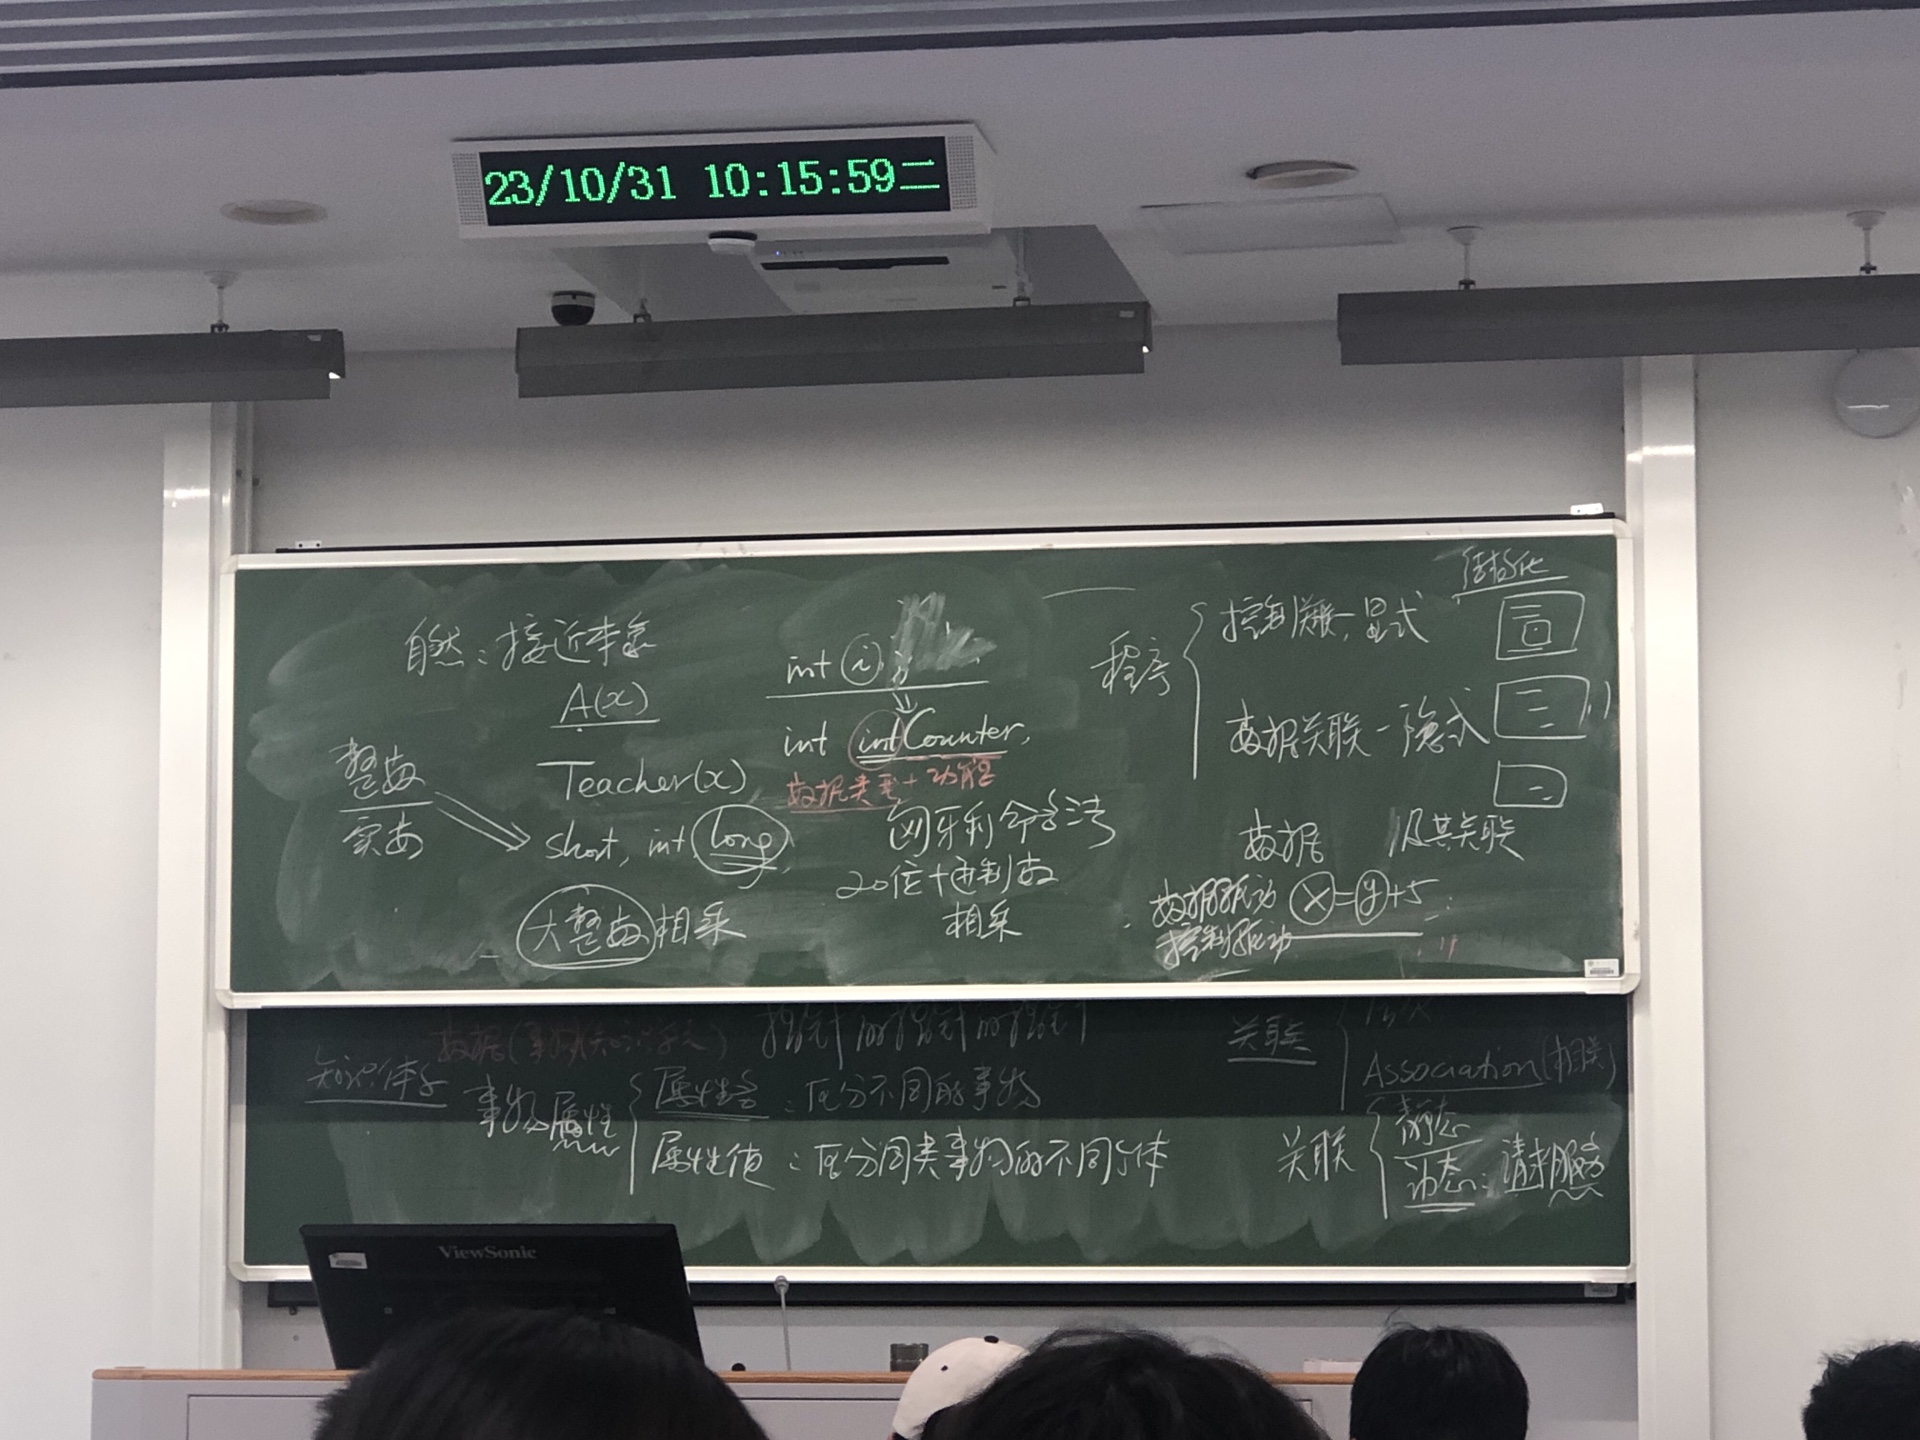 23/10/31 10:15:59二
结构化
自然:接近本意
A(x)
Teacher(x)
整数
实数
short, int, long,
大整数相乘
int i;
int intCounter,
数据类型+功能
匈牙利命名法
20位十进制数
相乘
程序
控制关联-显式
数据关联-隐式
数据 及其关联
数据驱动 x=y+5
控制驱动
指针的指针的指针
知识体系
事物属性
属性名:区分不同的事物
属性值:区分同类事物的不同个体
关联
Association(相关)
关联
静态
动态:请求服务
ViewSonic